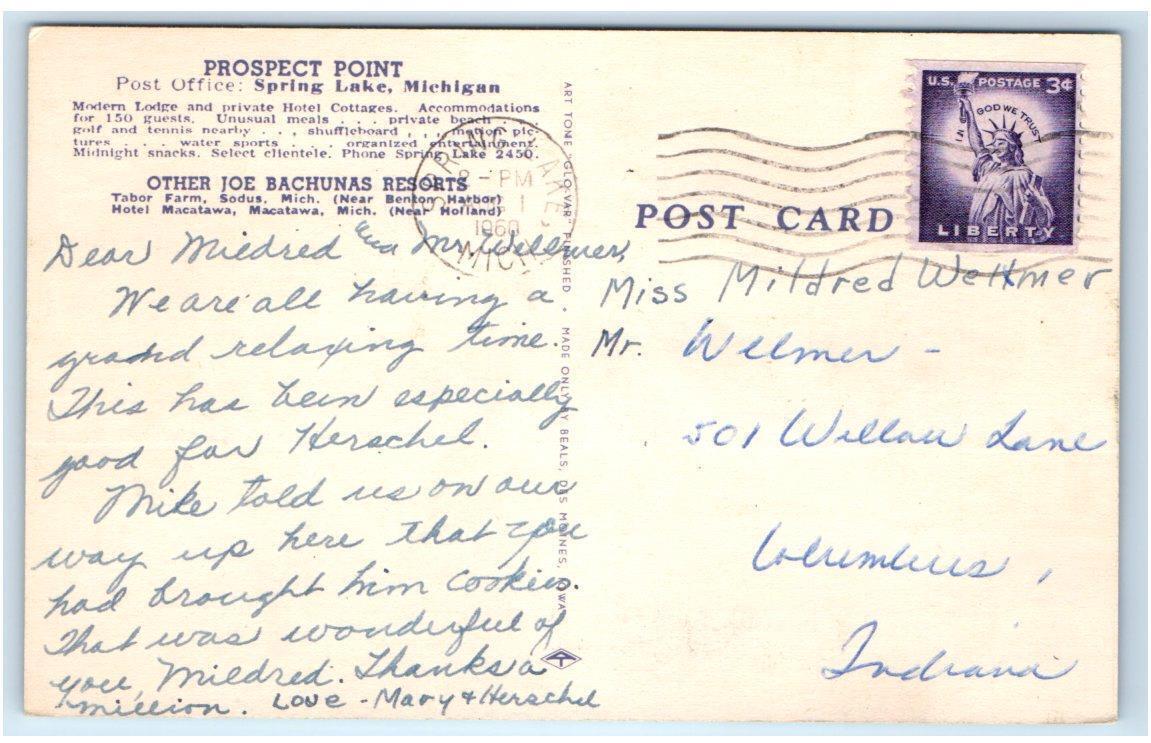 PROSPECT POINT
Post Office: Spring Lake, Michigan
Modern Lodge and private Hotel Cottages. Accommodations
for 150 guests. Unusual meals . . . private beach . . .
golf and tennis nearby . . . shuffleboard . . . motion pic-
tures . . . water sports . . . organized entertainment.
Midnight snacks. Select clientele. Phone Spring Lake 2450.
OTHER JOE BACHUNAS RESORTS
Tabor Farm, Sodus, Mich. (Near Benton Harbor)
Hotel Macatawa, Macatawa, Mich. (Near Holland)
Dear Mildred and Mr. Weltmer,
We are all having a
grand relaxing time.
This has been especially
good for Herschel.
Mike told us on our
way up here that you
had brought him cookies.
That was wonderful of
you, Mildred. Thanks a
million. Love - Mary & Herschel
ART TONE "GLO-VAR" FINISHED • MADE ONLY BY BEALS, DES MOINES, IOWA
SPRING LAKE,
8 - PM
1
1960
MICH.
U.S. POSTAGE 3¢
IN GOD WE TRUST
LIBERTY
POST CARD
Miss Mildred Weltmer
Mr. Welmer -
501 Willow Lane
Columbus,
Indiana